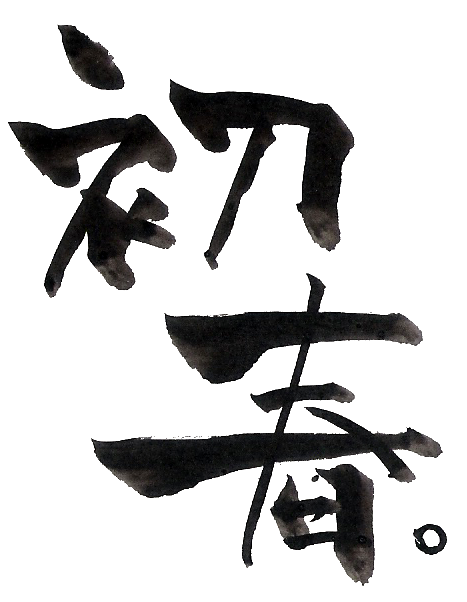 初
春。